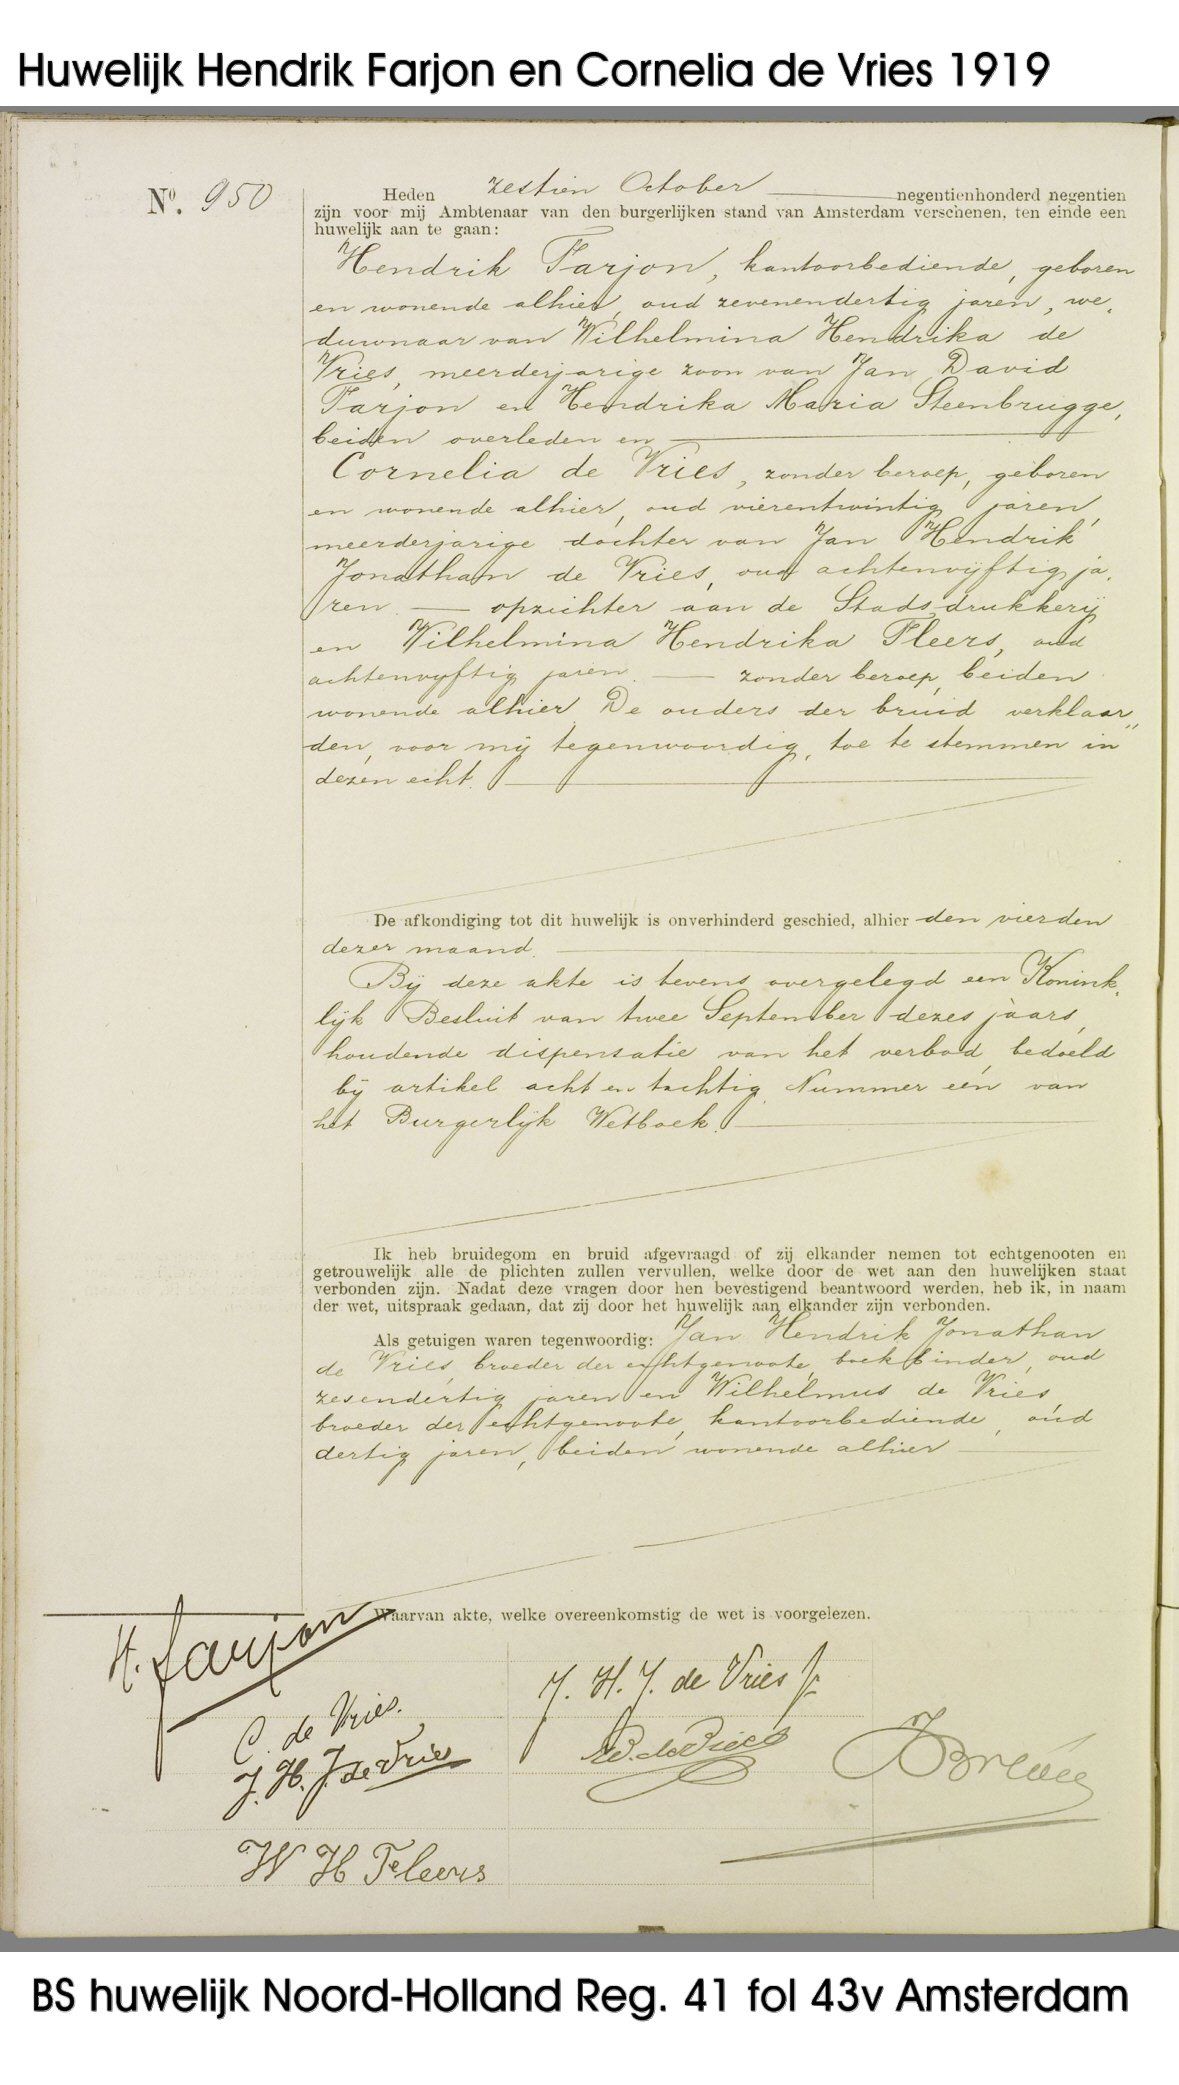 Huwelijk Hendrik Farjon en Cornelia de Vries 1919
No. 950
Heden zestien October negentienhonderd negentien
zijn voor mij Ambtenaar van den burgerlijken stand van Amsterdam verschenen, ten einde een
huwelijk aan te gaan:
Hendrik Farjon, kantoorbediende, geboren
en wonende alhier, oud zevenendertig jaren, we-
duwnaar van Wilhelmina Hendrika de
Vries, meerderjarige zoon van Jan David
Farjon en Hendrika Maria Steenbrugge,
beiden overleden en
Cornelia de Vries, zonder beroep, geboren
en wonende alhier, oud vierentwintig jaren,
meerderjarige dochter van Jan Hendrik
Jonathan de Vries, oud achtenvijftig ja-
ren — opzichter aan de Stadsdrukkerij
en Wilhelmina Hendrika Fleers, oud
achtenvyftig jaren — zonder beroep, beiden
wonende alhier. De ouders der bruid verklaar-
den, voor mij tegenwoordig, toe te stemmen in
dezen echt.
De afkondiging tot dit huwelijk is onverhinderd geschied, alhier den vierden
dezer maand.
Bij deze akte is tevens overgelegd een Konink-
lijk Besluit van twee September dezes jaars,
houdende dispensatie van het verbod, bedoeld
bij artikel acht en tachtig Nummer één van
het Burgerlijk Wetboek.
Ik heb bruidegom en bruid afgevraagd of zij elkander nemen tot echtgenooten en
getrouwelijk alle de plichten zullen vervullen, welke door de wet aan den huwelijken staat
verbonden zijn. Nadat deze vragen door hen bevestigend beantwoord werden, heb ik, in naam
der wet, uitspraak gedaan, dat zij door het huwelijk aan elkander zijn verbonden.
Als getuigen waren tegenwoordig: Jan Hendrik Jonathan
de Vries, broeder der echtgenoote, boekbinder, oud
zesendertig jaren en Wilhelmus de Vries
broeder der echtgenoote, kantoorbediende, oud
dertig jaren, beiden wonende alhier
Waarvan akte, welke overeenkomstig de wet is voorgelezen.
H. Farjon
C. de Vries.
J. H. J. de Vries
W H Fleers
J. H. J. de Vries Jr
W. de Vries
BS huwelijk Noord-Holland Reg. 41 fol 43v Amsterdam